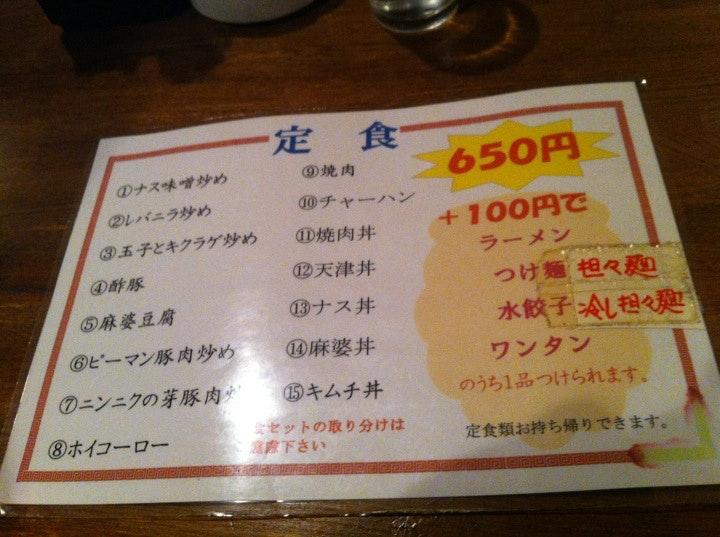 定 食
①ナス味噌炒め
②レバニラ炒め
③玉子とキクラゲ炒め
④酢豚
⑤麻婆豆腐
⑥ピーマン豚肉炒め
⑦ニンニクの芽豚肉炒
⑧ホイコーロー
⑨焼肉
⑩チャーハン
⑪焼肉丼
⑫天津丼
⑬ナス丼
⑭麻婆丼
⑮キムチ丼
食セットの取り分けは
遠慮下さい
650円
+100円で
ラーメン
つけ麺 担々麺
水餃子 冷し担々麺
ワンタン
のうち1品つけられます。
定食類お持ち帰りできます。